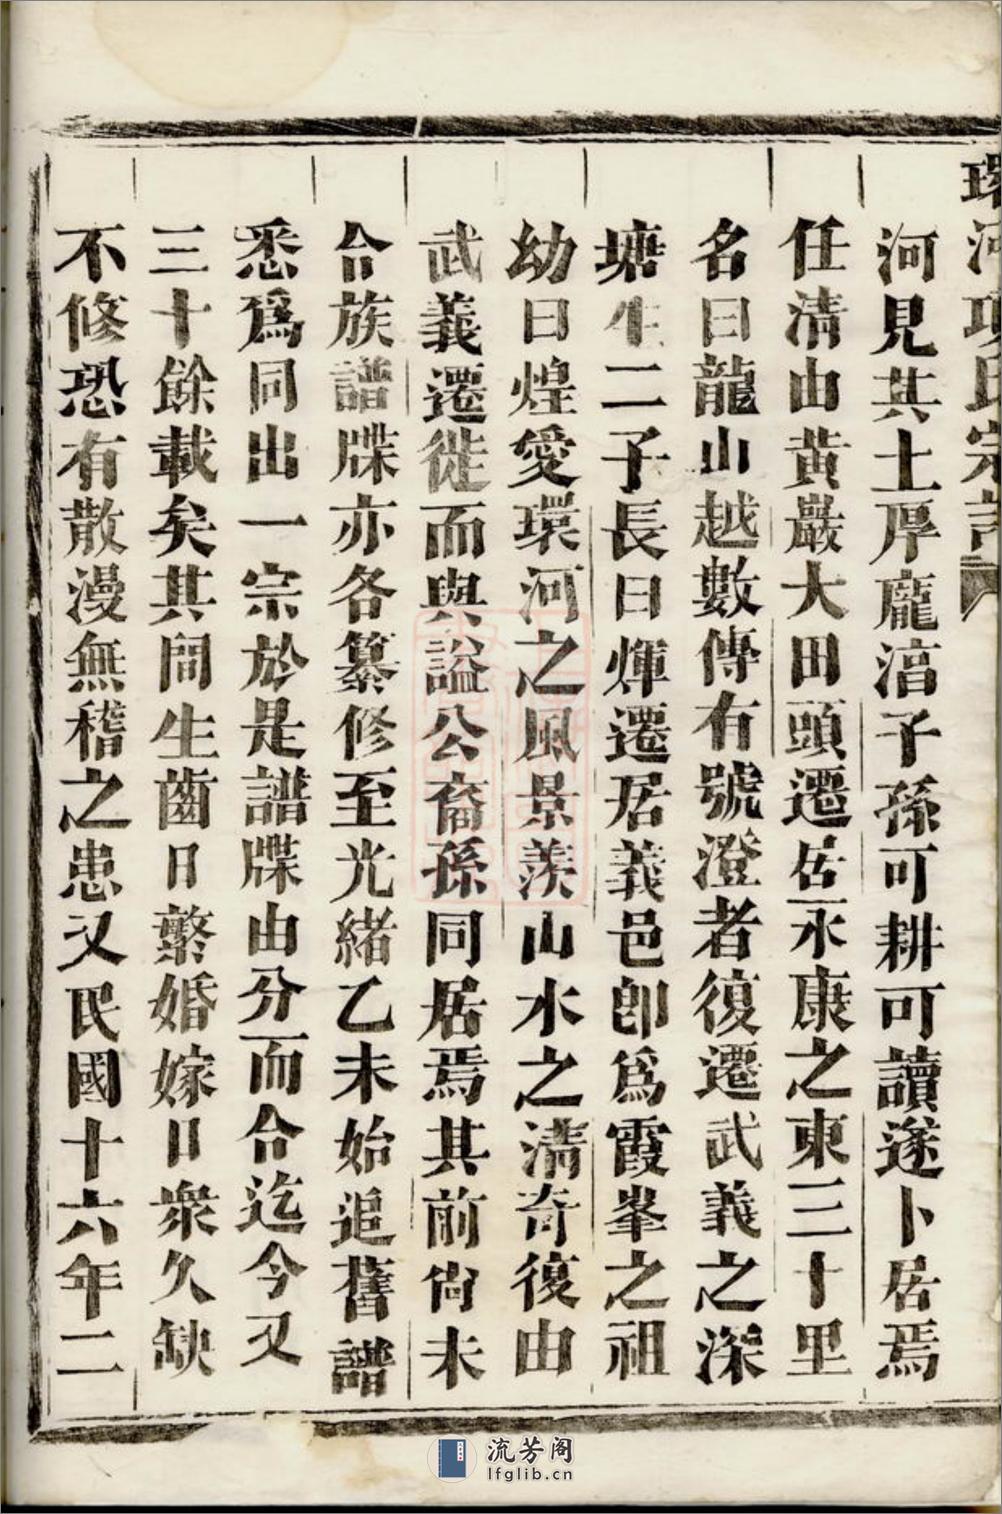 環河項氏宗譜
河見其土厚龐湻子孫可耕可讀遂卜居焉
任清由黃巖大田頭遷居永康之東三十里
名曰龍山越數傳有號澄者復遷武義之深
塘生二子長曰煇遷居義邑即爲霞峯之祖
幼曰煌愛環河之風景羨山水之清奇復由
武義遷徙而與謚公裔孫同居焉其前尚未
合族譜牒亦各纂修至光緒乙未始追舊譜
悉爲同出一宗於是譜牒由分而合迄今又
三十餘載矣其間生齒日繁婚嫁日衆久缺
不修恐有散漫無稽之患又民國十六年二
流芳阁
lfglib.cn